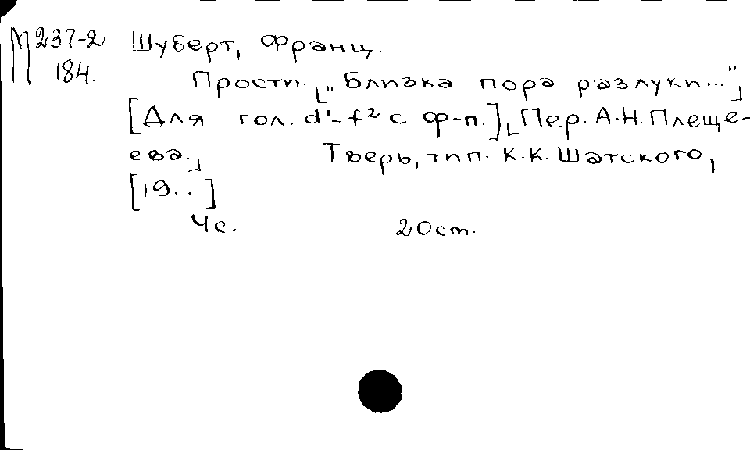 М 237-2 Шуберт, Франц.
184. Прости. „Близка пора разлуки..."
[Для гол. d¹-f² с ф-п.] Пер. А.Н. Плеще-
ева. Тверь, тип. К.К. Шатского,
[19..]
4 с. 20 см.